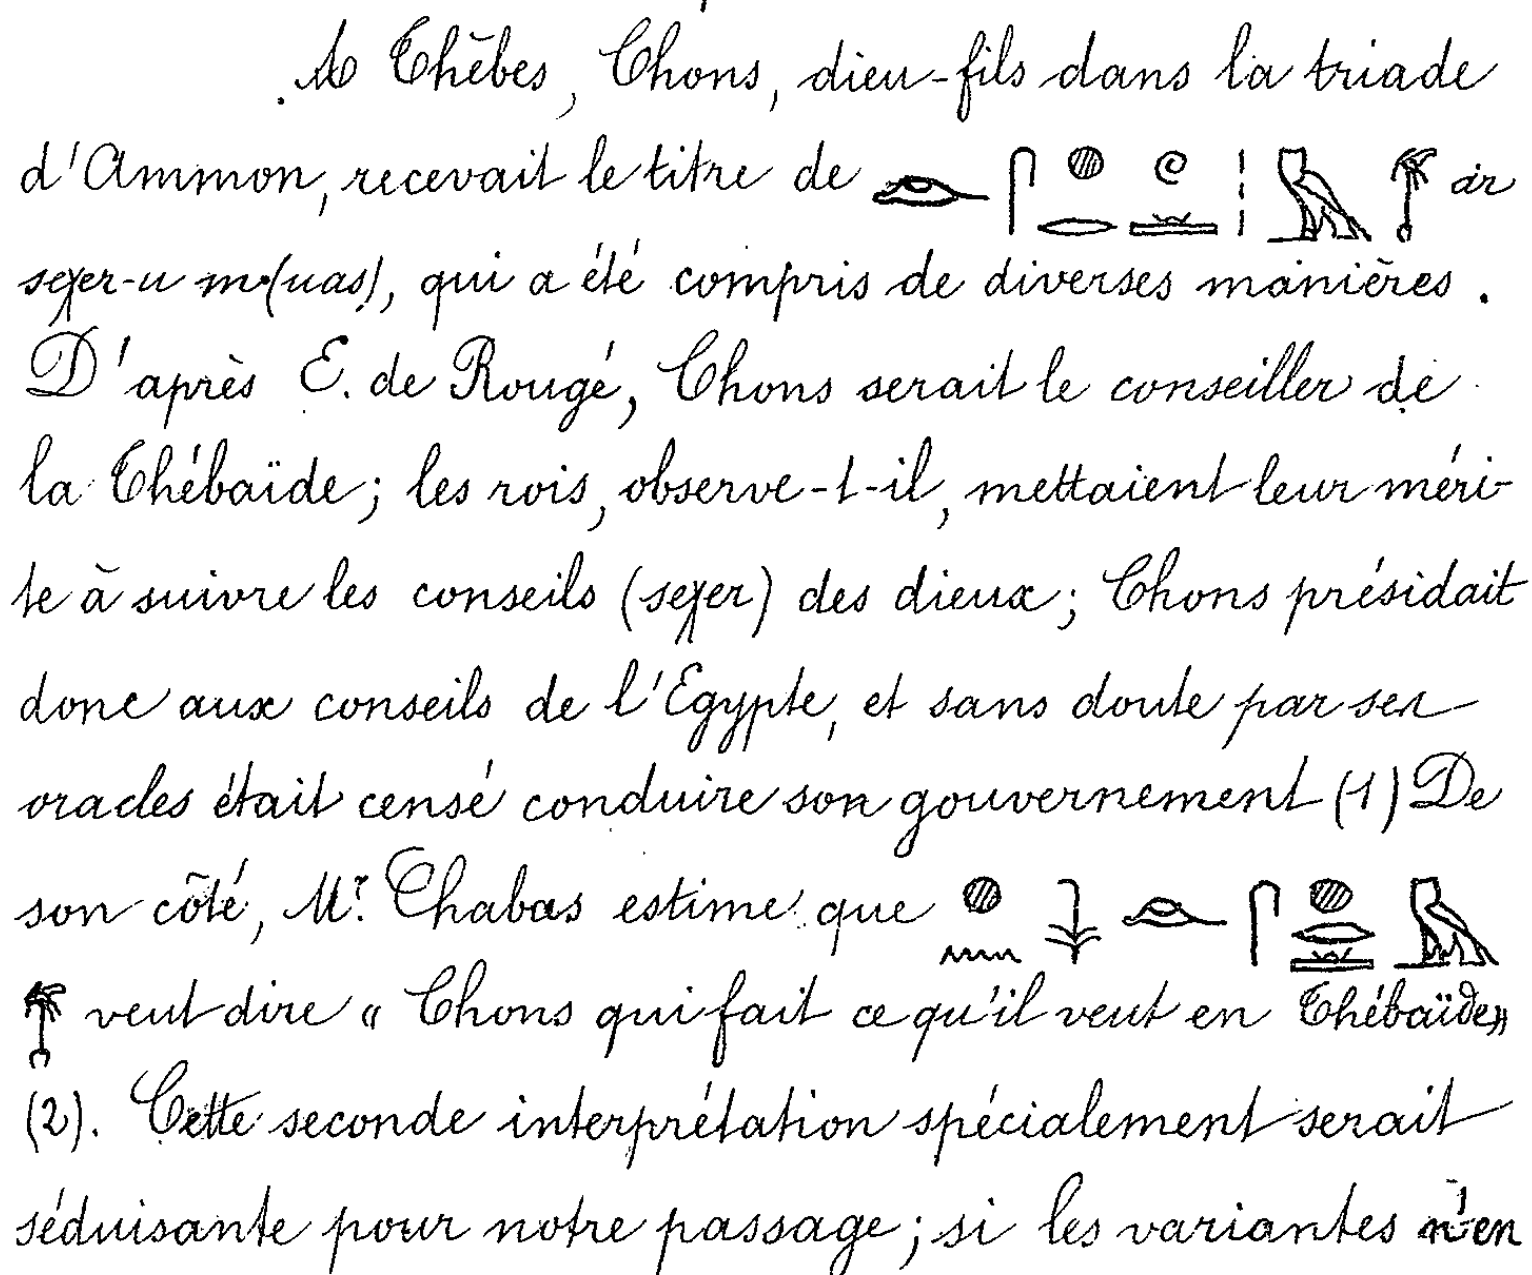 A Thèbes, Chons, dieu-fils dans la triade
d'Ammon, recevait le titre de 𓁹 𓋴 𓐍 𓂋 𓏲 𓏛 𓏥 𓅓 𓇅 ar
seχer-u m (uas), qui a été compris de diverses manières.
D'après E. de Rougé, Chons serait le conseiller de
la Thébaïde; les rois, observe-t-il, mettaient leur méri-
te à suivre les conseils (seχer) des dieux; Chons présidait
donc aux conseils de l'Egypte, et sans doute par ses
oracles était censé conduire son gouvernement (1) De
son côté, Mr. Chabas estime que 𓐍 𓈖 𓇓 𓁹 𓋴 𓐍 𓂋 𓏛 𓅓
veut dire « Chons qui fait ce qu'il veut en Thébaïde»
(2). Cette seconde interprétation spécialement serait
séduisante pour notre passage; si les variantes n'en